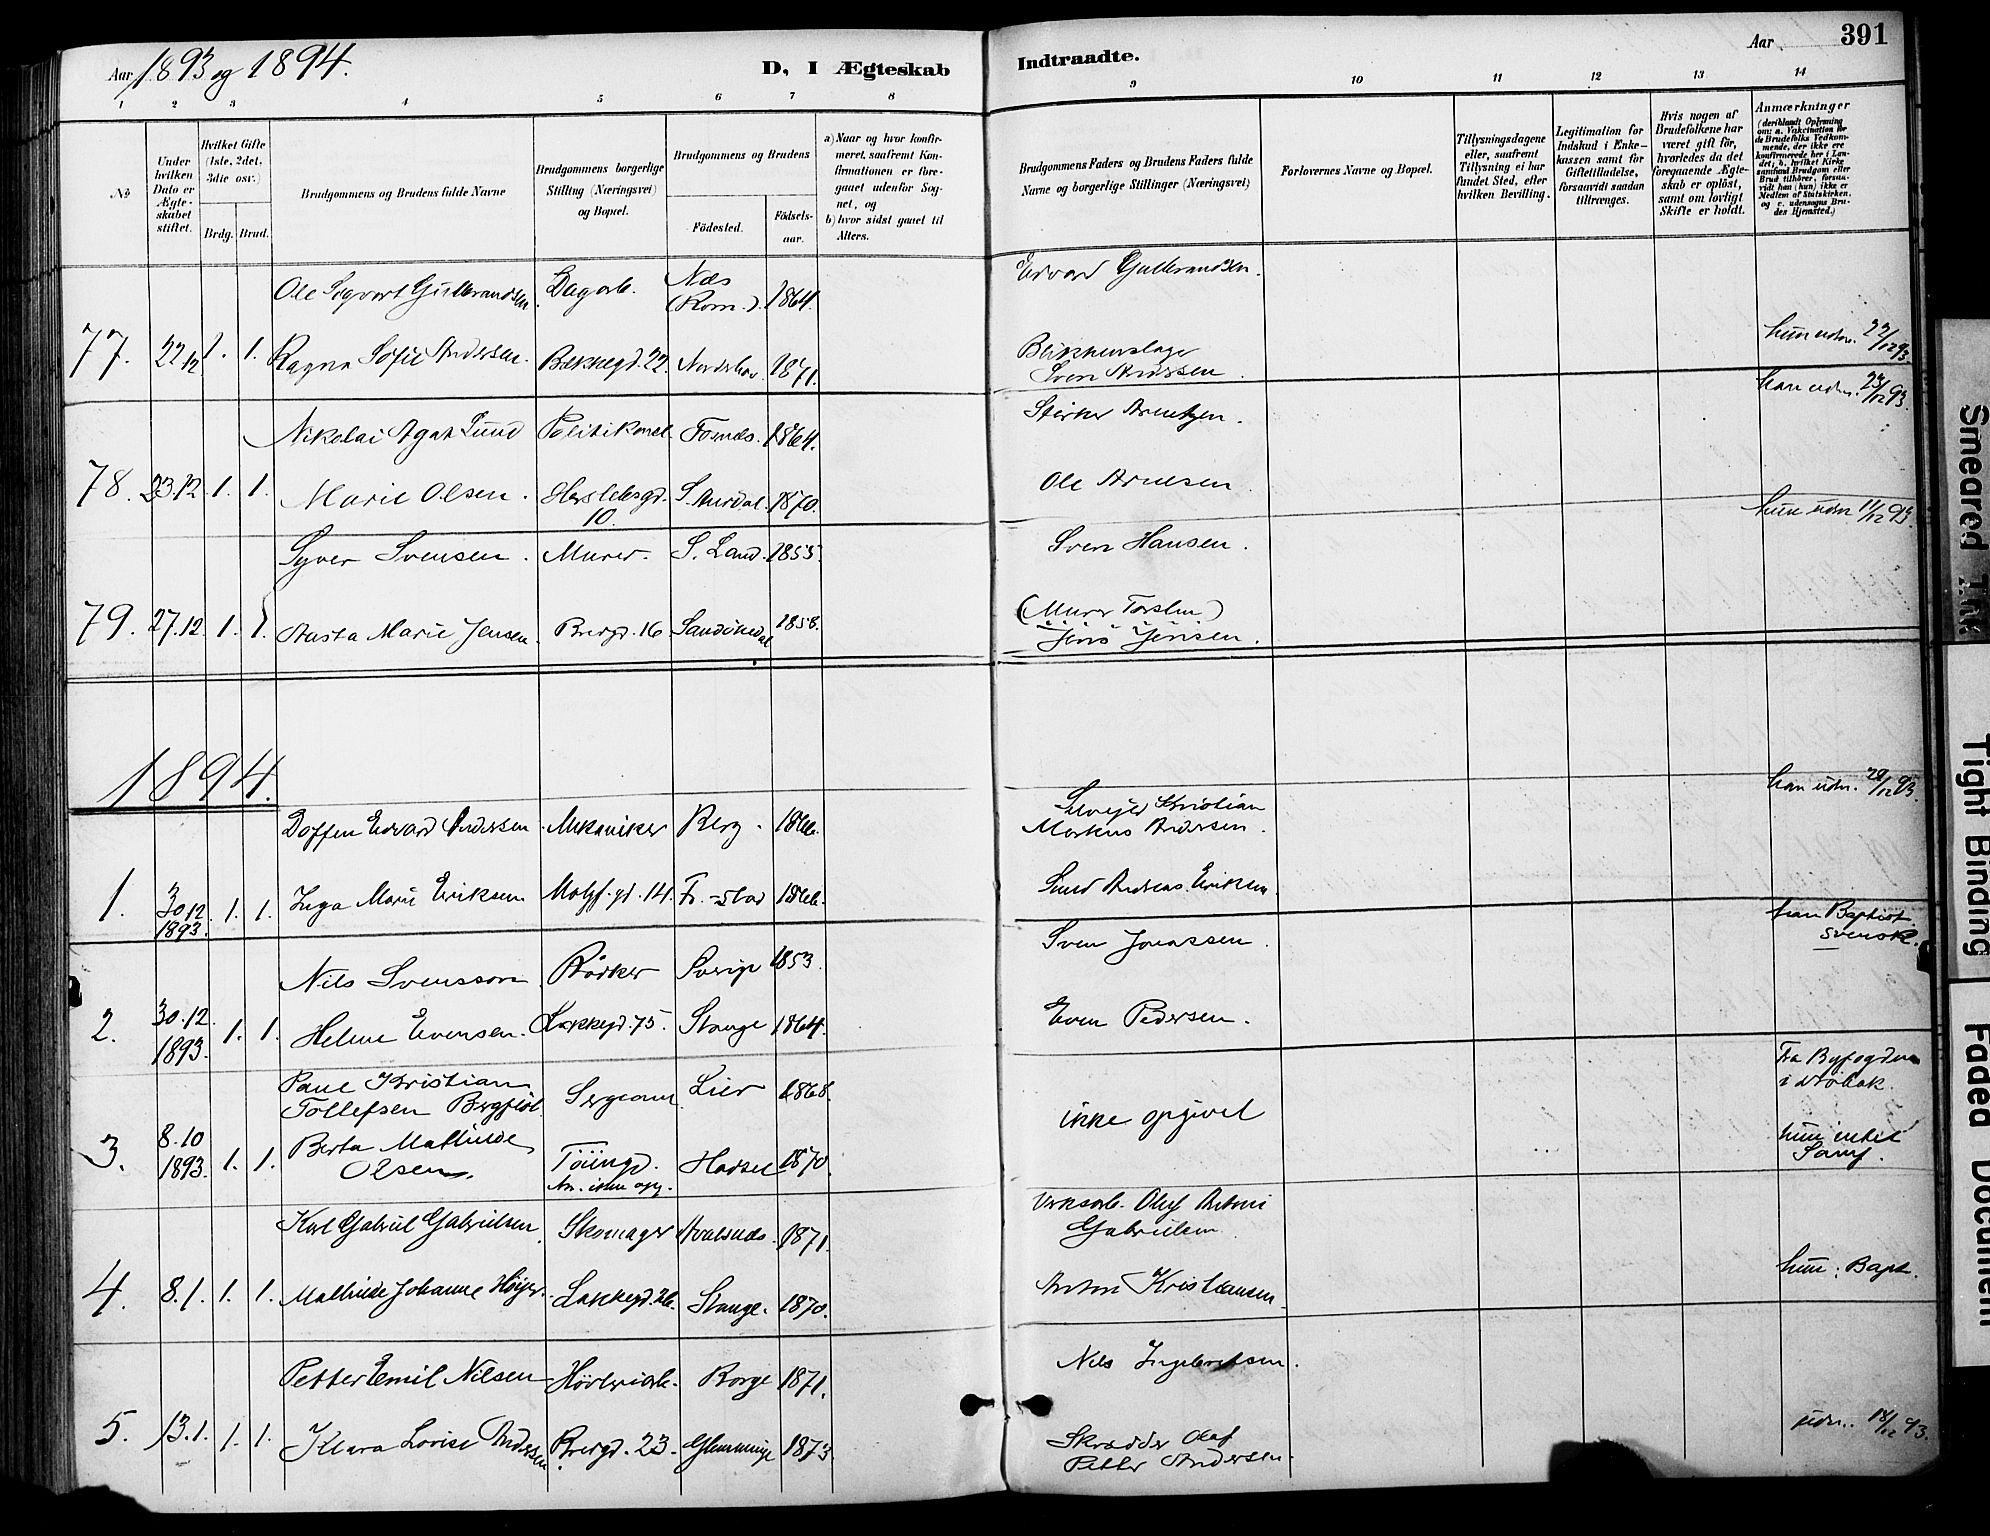 Aar 1893 og 1894.
D, I Ægteskab
Indtraadte.
Aar
391
1 2 3 4 5 6 7 8 9 10 11 12 13 14
No
Under hvilken Dato er Ægteskabet stiftet.
Hvilket Gifte (1ste, 2det, 3die osv.)
Brdg. Brud.
Brudgommens og Brudens fulde Navne
Brudgommens borgerlige Stilling (Næringsvei) og Bopæl.
Brudgommens og Brudens
Födested.
Födsels-aar.
a) Naar og hvor konfirmeret, saafremt Konfirmationen er foregaaet udenfor Sognet, og
b) hvor sidst gaaet til Alters.
Brudgommens Faders og Brudens Faders fulde Navne og borgerlige Stillinger (Næringsvei)
Forlovernes Navne og Bopæl.
Tillysningsdagene eller, saafremt Tillysning ei har fundet Sted, efter hvilken Bevilling.
Legitimation for Indskud i Enkekassen samt for Giftetilladelse, forsaavidt saadan tiltrænges.
Hvis nogen af Brudefolkene har været gift för, hvorledes da det foregaaende Ægteskab er oplöst, samt om lovligt Skifte er holdt.
Anmærkninger
(deriblandt Oplysning om: a. Vakcination for de Brudefolks Vedkommende, der ikke ere konfirmerede her i Landet; b. hvilket Kirkesamfund Brudgom eller Brud tilhörer, forsaavidt han (hun) ikke er Medlem af Statskirken, og c. udensogns Brudes Hjemsted.)
Ole Sigvart Gulbrandsen. Dagarb. Næs (Rom.). 1864. Edvard Gulbrandsen.
77. 22.12 1. 1. Ragna Sofie Andersen. Bakkegd. 22. Norderhov. 1871. Blikkenslager Sven Andersen. hun udm. 22/12 93.
Nikolai Agat Lund Politikonst. Fosnæs. 1864. Størker Arentzen. han udm. 23/12 93.
78. 23.12. 1. 1. Marie Olsen. Herslebsgd. 10. S. Aurdal. 1870. Ole Arnesen
Syver Svensen. Murer. S. Land. 1855. Sven Hansen. hun udm 11/12 93.
79. 27.12. 1. 1. Aasta Marie Jensen. Bregd. 16 Sandökedal 1858. (Murer Torslen) Jens Jensen.
1894.
Doffen Edvard Andersen. Mekaniker Berg. 1866. Selveier Kristian Markus Andersen. han udm. 29/12 93.
1. 30.12 1893. 1. 1. Inga Marie Eriksen Motzf.gd. 14. Fr.-stad 1866. Smed Andreas Eriksen.
Nils Svensson. Bödker Sverige 1853. Sven Jonassen. han Baptist svensk.
2. 30.12. 1893. 1. 1. Helene Evensen. Lakkegd. 75. Stange 1864. Even Pedersen.
Paul Kristian Tollefsen Bergflöt Sergeant. Lier 1868. Fra Byfogden i Dröbak.
3. 8.10 1893. 1. 1. Berta Mathilde Olsen. Töiengd. No. ikke opg. Hadsel 1870. ikke opgivet hun intet Samf.
Karl Gabriel Gabrielsen. Skomager Avalsnæs. 1871. Verksarb. Oluf Antoni Gabrielsen
4. 8.1. 1. 1. Mathilde Johanne Höijer. Lakkegd. 26. Stange. 1870. Anton Kristiansen. hun: Bapt.
Petter Emil Nilsen Hövleriarb. Borge 1871. Nils Ingebretsen.
5. 13.1. 1. 1. Klara Lovise Andersen Bregd. 23. Glemminge 1873. Skrædder Olaf Petter Andersen. udm. 18/12 93.
Smeared Ink
Tight Binding
Faded Document